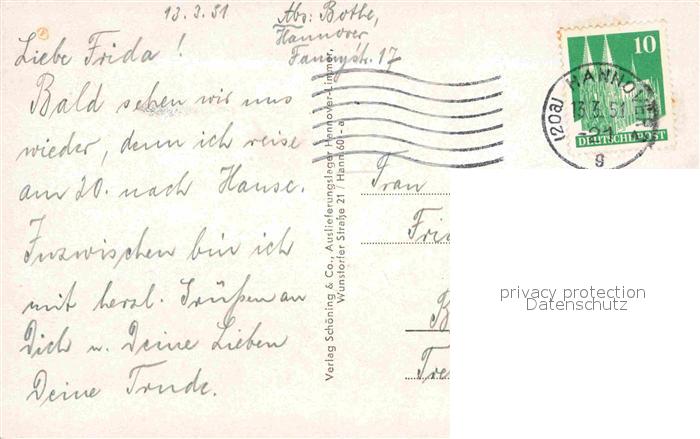 13.3.51
Abs: Bothe,
Hannover
Fannystr. 17
Liebe Frida!
Bald sehen wir uns
wieder, denn ich reise
am 20. nach Hause.
Inzwischen bin ich
mit herzl. Grüßen an
Dich u. Deine Lieben
Deine Trude.
Verlag Schöning & Co., Auslieferungslager Hannover-Limmer,
Wunstorfer Straße 21 / Hann. 601 - a
10
DEUTSCHE POST
(20a) HANNOVER
13.3.51
g
Frau
Fri
B
Tre
privacy protection
Datenschutz